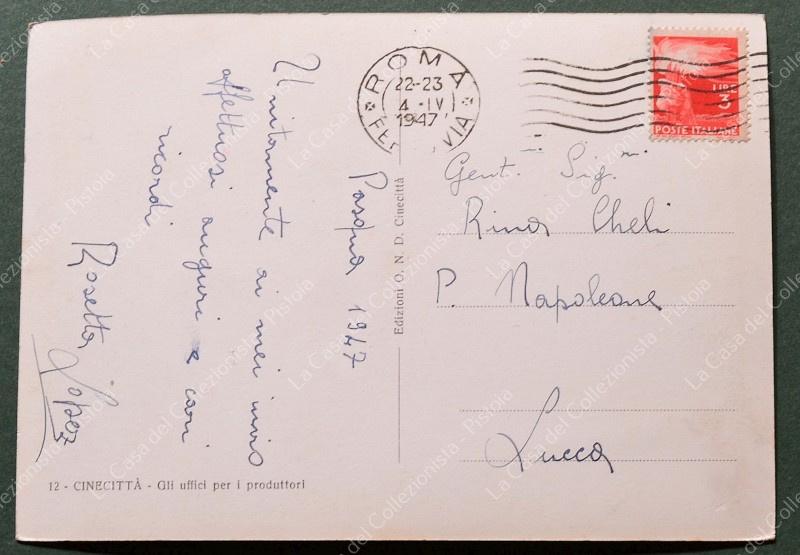 Pasqua 1947
Unitamente ai miei invio
affettuosi auguri e cari
ricordi
Rosetta Lopez
12 - CINECITTÀ - Gli uffici per i produttori
Edizioni O. N. D. Cinecittà
ROMA
22-23
4 - IV
1947
LIRE
3
POSTE ITALIANE
Gent. Sig.
Rina Cheli
P. Napoleone
Lucca
La Casa del Collezionista - Pistoia